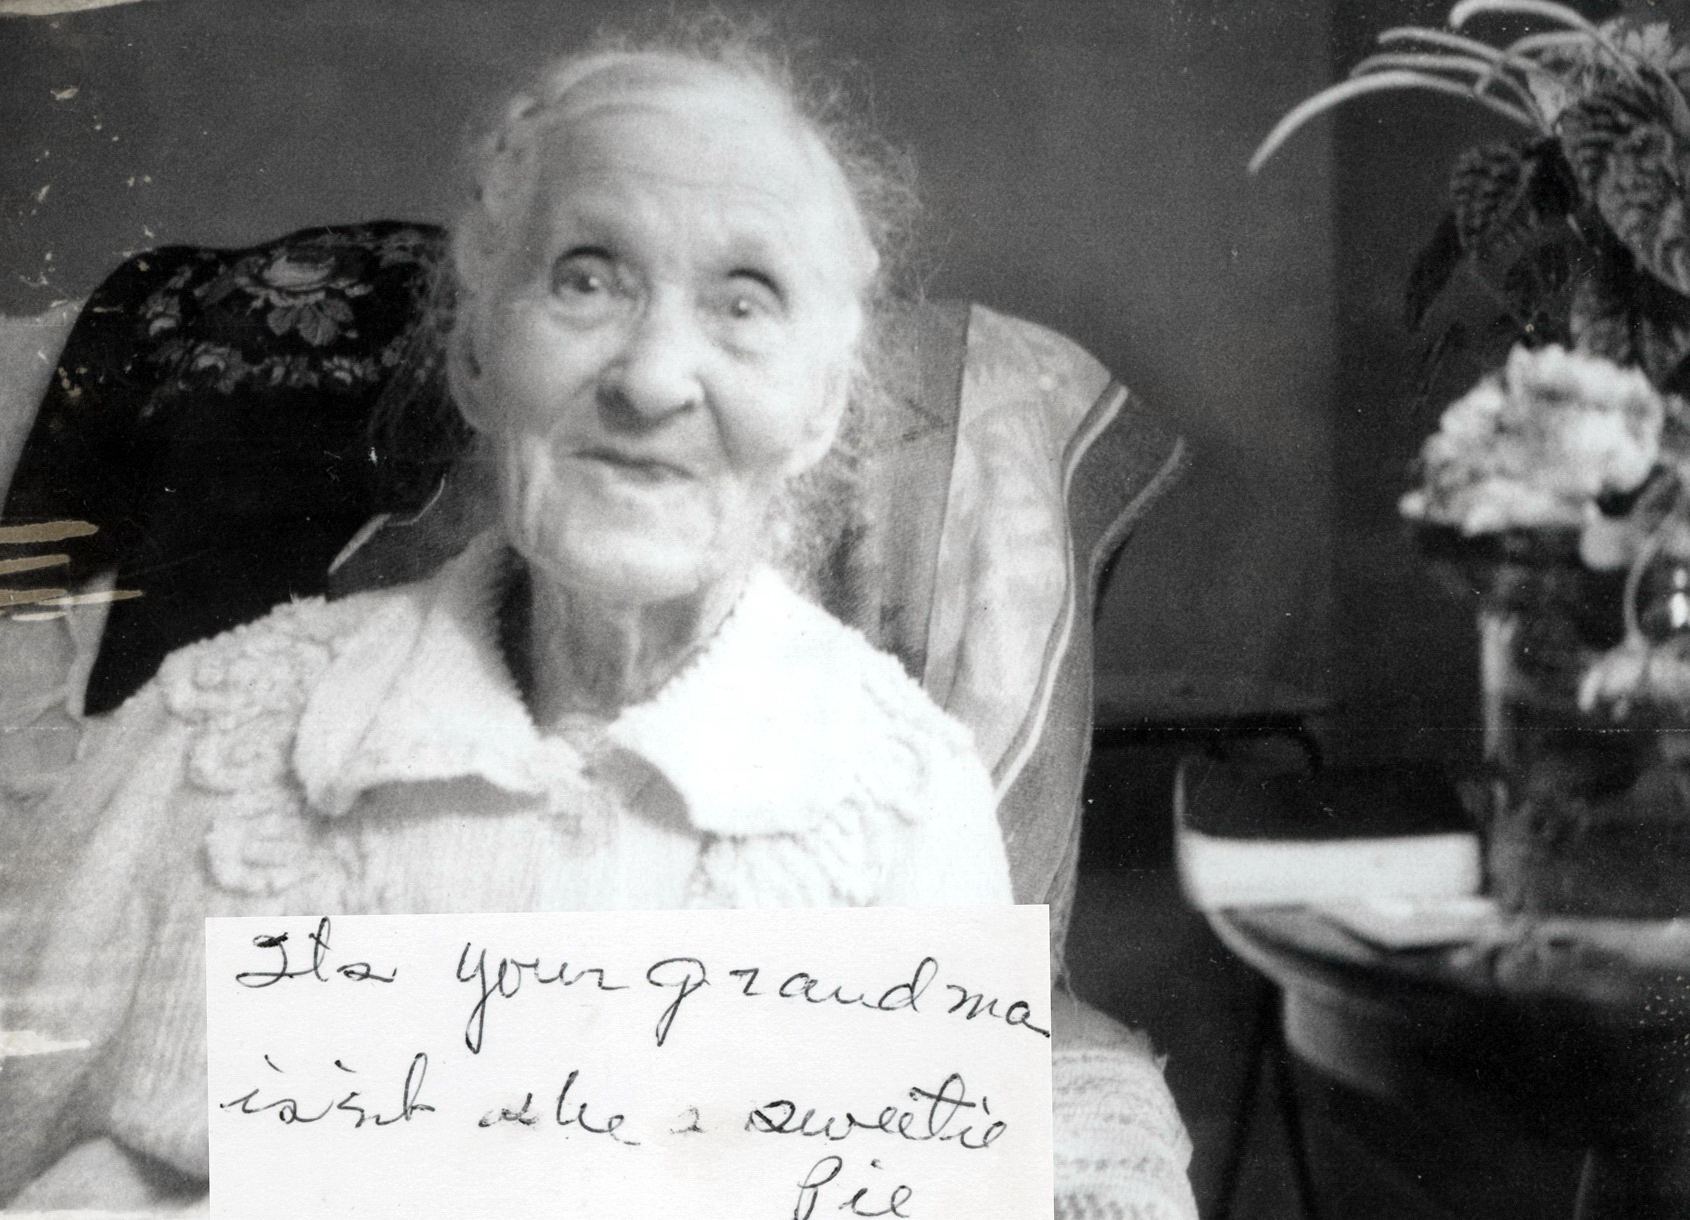 Its your grandma
is'nt she a sweetie
Pie